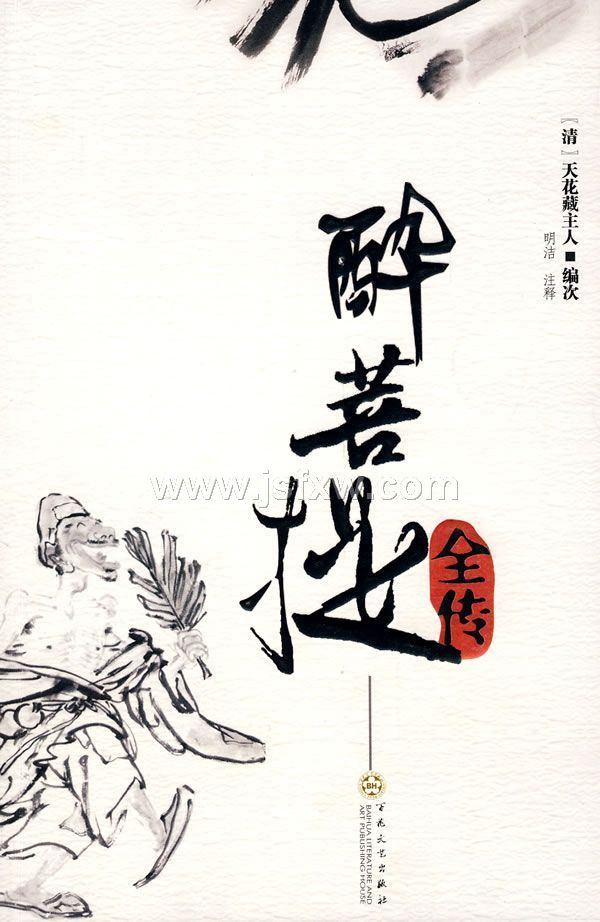 [清]天花藏主人■编次
明洁 注释
醉菩提
全传
www.jsfxw.com
BH
百花文艺出版社
BAIHUA LITERATURE AND
ART PUBLISHING HOUSE